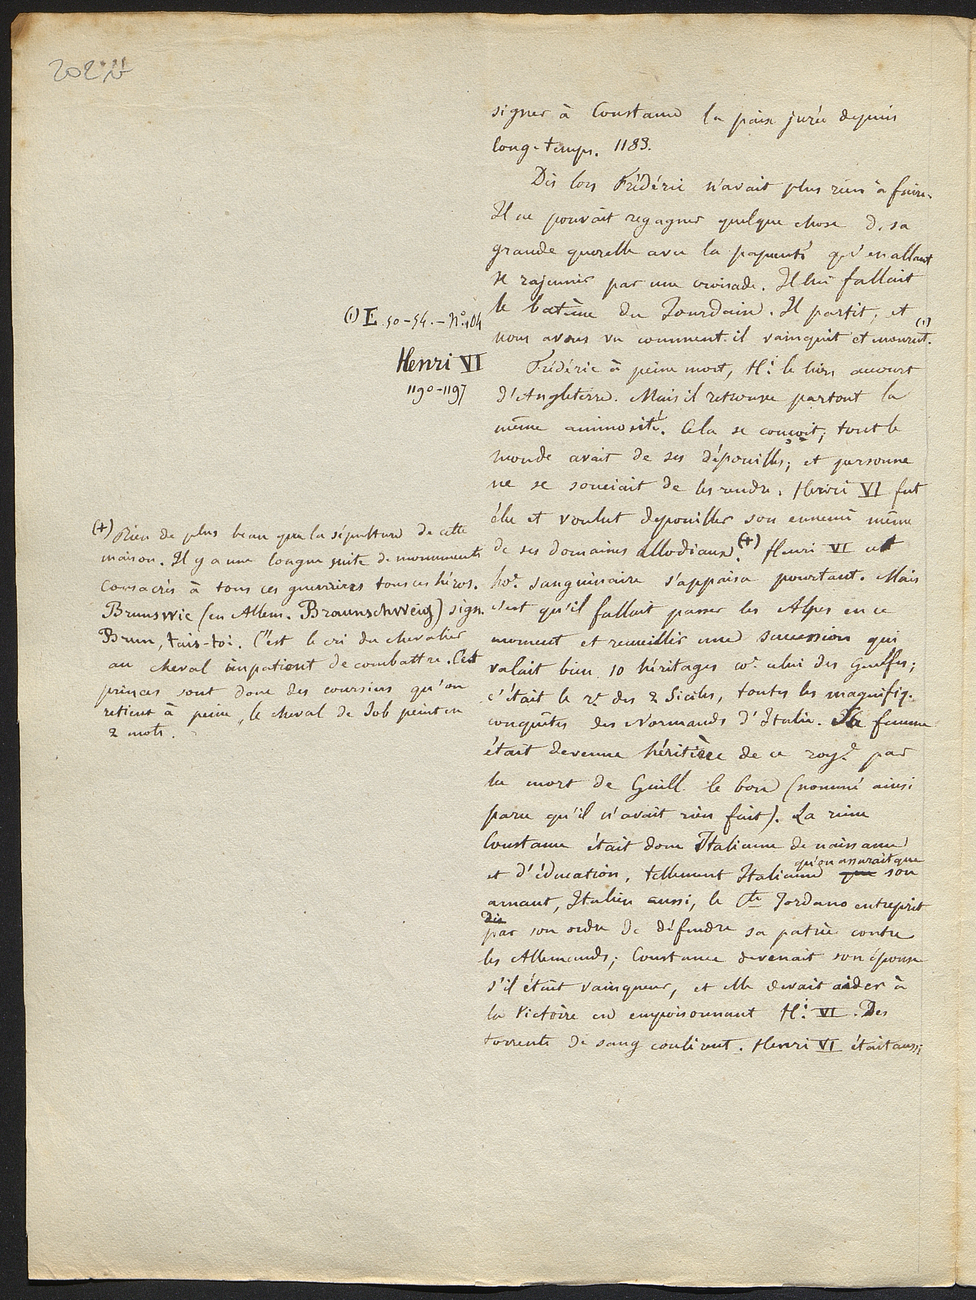 202
signer à Constance la paix jurée depuis
long-temps. 1183.
Dès lors Frédéric n'avait plus rien à faire.
Il ne pouvait regagner quelque chose d. sa
grande querelle avec la papauté qu'en allant
se rajeunir par une croisade. Il lui fallait
le batême du Jourdain. Il partit, et
nous avons vu comment il vainquit et mourut. (1)
(1) E. 50-54. - N° 104
Henri VI
1190-1197
Frédéric à peine mort, H.i le lion accourt
d'Angleterre. Mais il retrouve partout la
même animosité. Cela se conçoit; tout le
monde avait de ses dépouilles; et personne
ne se souciait de les rendre. Henri VI fut
élu et voulut depouiller son ennemi même
de ses domaines allodiaux (+) Henri VI cet
ho.e sanguinaire s'appaisa pourtant. Mais
c'est qu'il fallait passer les Alpes en ce
moment et recueillir une succession qui
valait bien 10 héritages co.e celui des Guelfes;
c'était le r.e des 2 Siciles, toutes les magnifiq.
conquêtes des Normands d'Italie. Sa femme
était devenue héritière de ce roy.e par
la mort de Guill. le bon (nommé ainsi
parce qu'il n'avait rien fait). La reine
Constance était donc Italienne de naissance
et d'éducation, tellement Italienne qu'on assurait que son
amant, Italien aussi, le Cte Jordano entreprit
par son ordre de défendre sa patrie contre
les Allemands; Constance devenait son épouse
s'il était vainqueur, et elle devait aider à
la victoire en empoisonnant H.i VI. Des
torrents de sang coulèrent. Henri VI était aussi
(+) Rien de plus beau que la sépulture de cette
maison. Il y a une longue suite de monuments
consacrés à tous ces guerriers tous ces héros.
Brunswic (en Allem. Braunschweig) sign.
Brun, tais-toi. C'est le cri du chevalier
au cheval impatient de combattre. Cest
princes sont donc des coursiers qu'on
retient à peine, le cheval de Job peint en
2 mots.